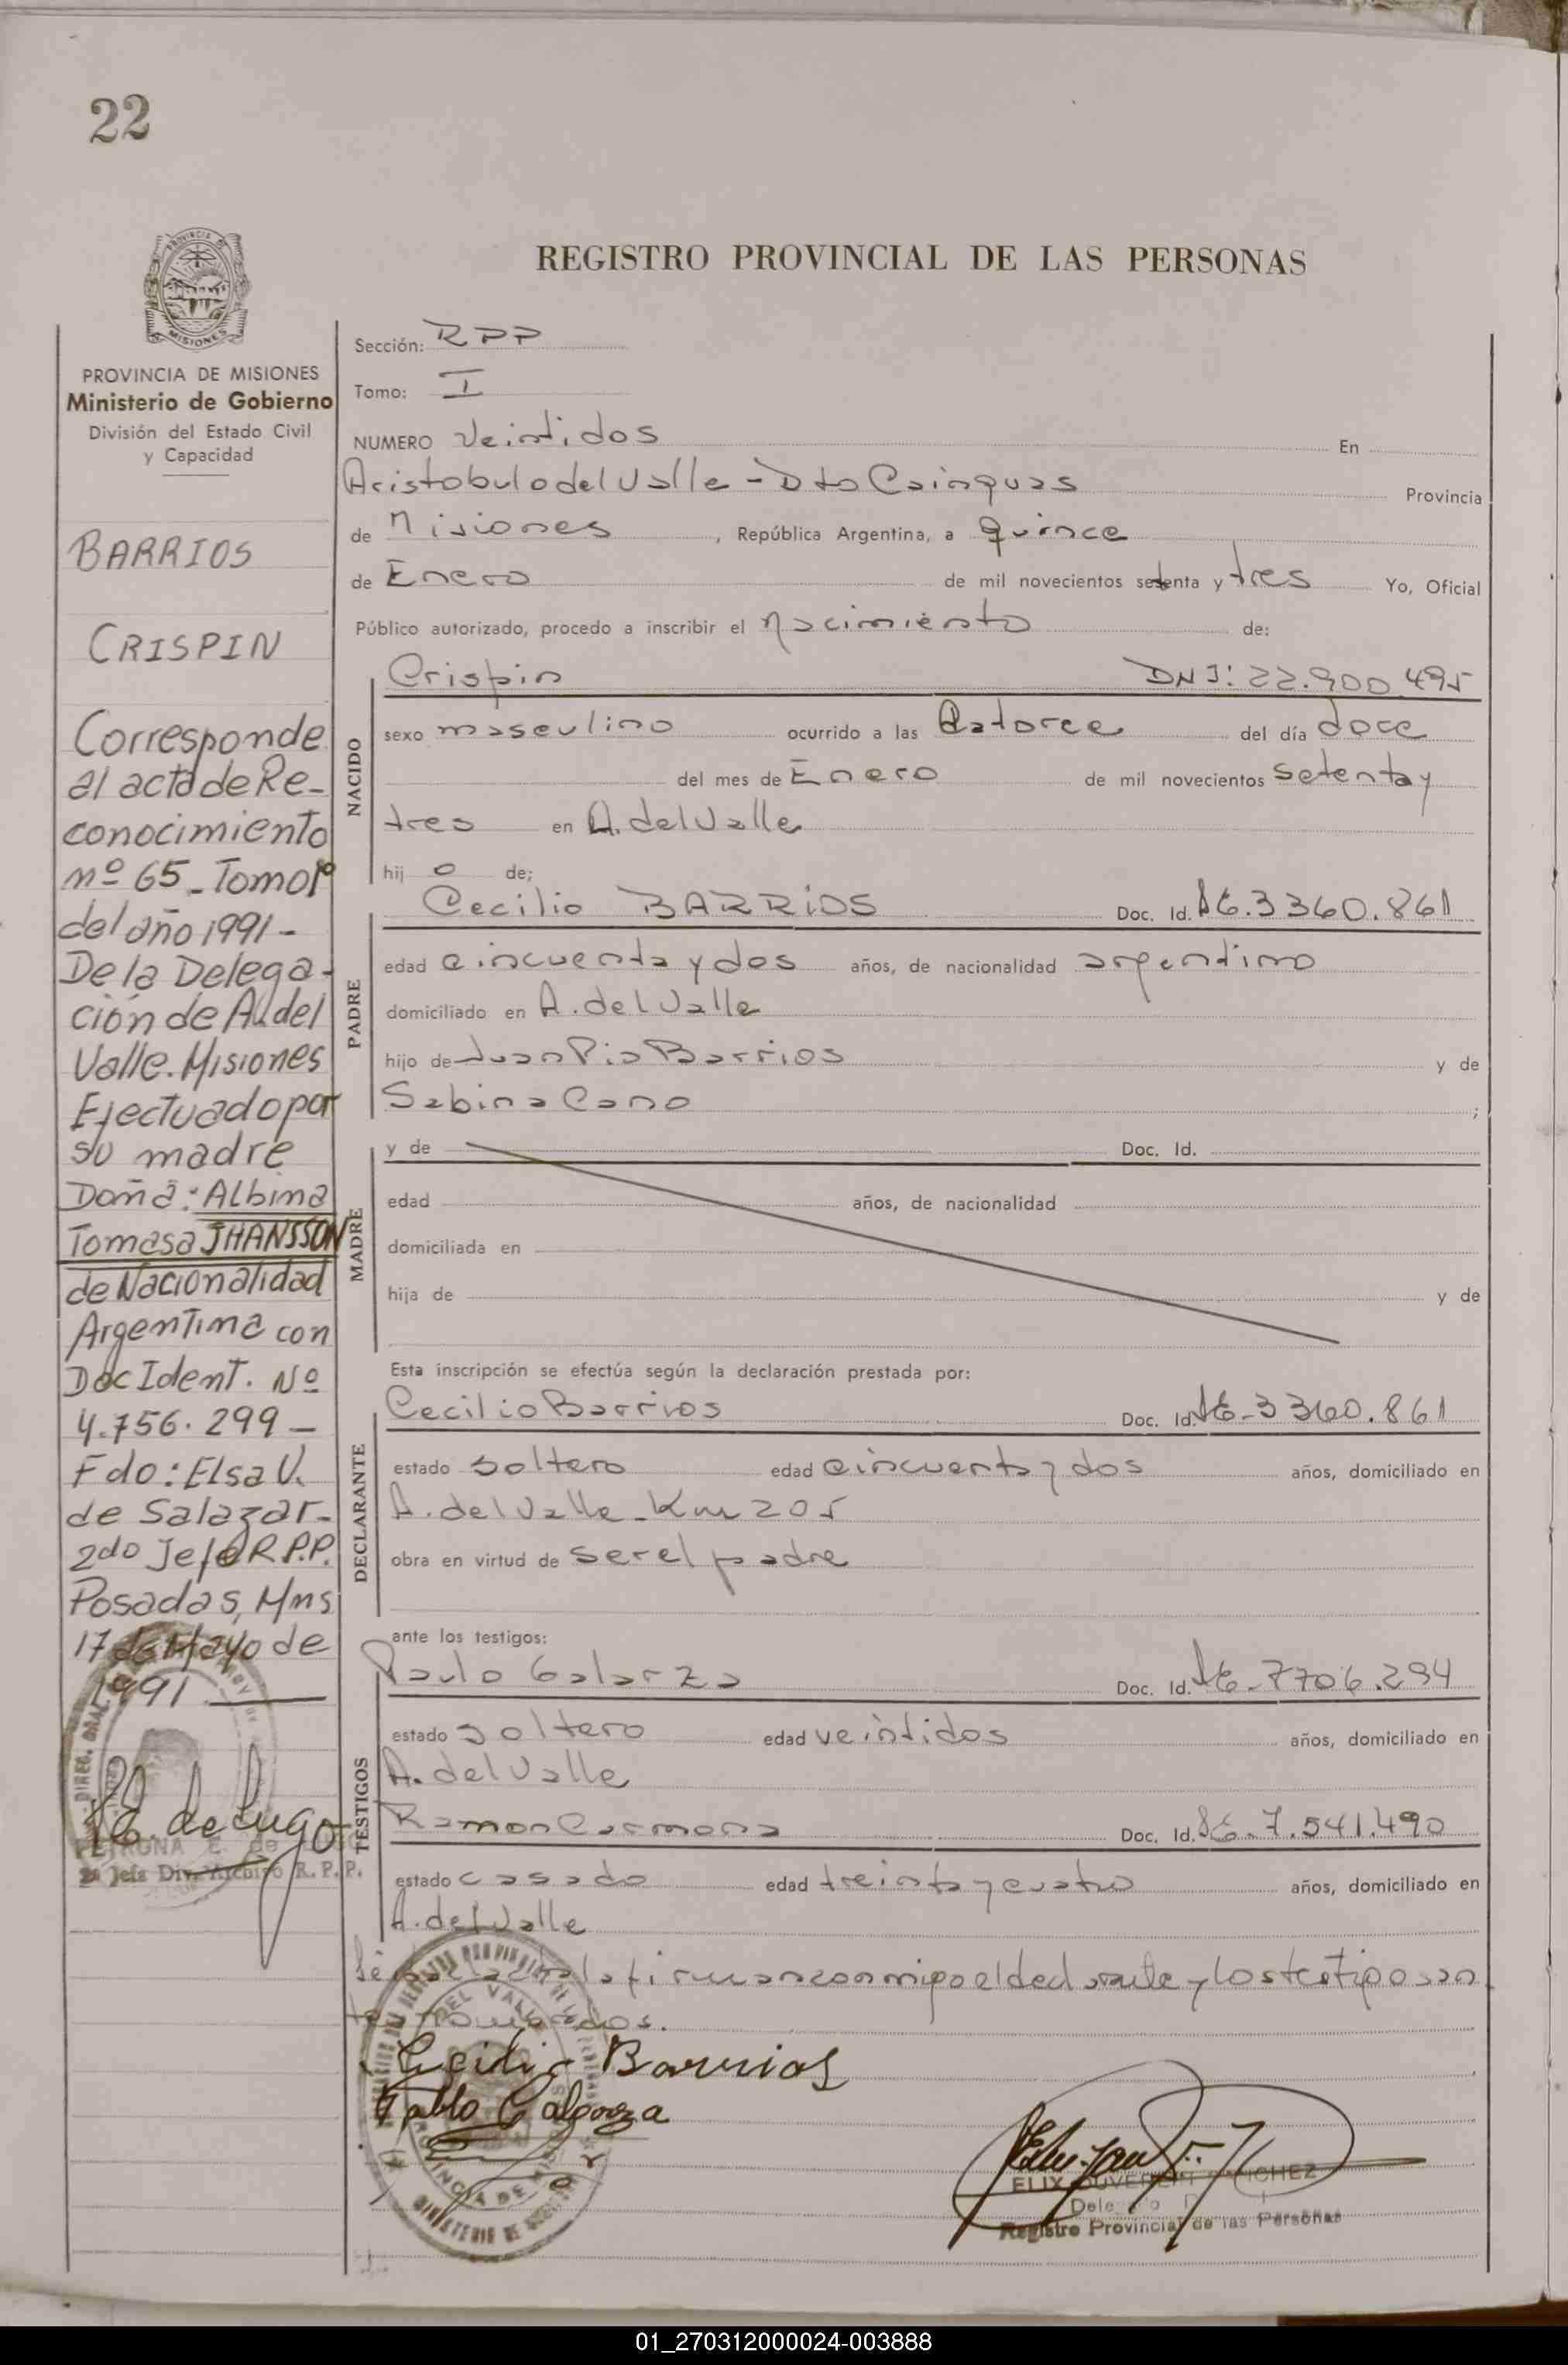 22
REGISTRO PROVINCIAL DE LAS PERSONAS
PROVINCIA DE
MISIONES
PROVINCIA DE MISIONES
Ministerio de Gobierno
División del Estado Civil
y Capacidad
BARRIOS
CRISPIN
Corresponde
al acta de Re-
conocimiento
nº 65 - Tomo Iº
del año 1991 -
De la Delega-
ción de A. del
Valle. Misiones
Efectuado por
su madre
Doña: Albina
Tomasa JHANSSON
de Nacionalidad
Argentina con
Doc Ident. Nº
4.756.299 -
Fdo: Elsa V.
de Salazar-
2do Jefe R.P.P.
Posadas, Mns
17 de Mayo de
1991
de Lugo
2a Jefa Div. Archivo R. P. P.
Sección: RPP
Tomo: I
NUMERO Veintidos En
Aristobulo del Valle - Dto Cainguas Provincia
de Misiones , República Argentina, a quince
de Enero de mil novecientos setenta y tres Yo, Oficial
Público autorizado, procedo a inscribir el nacimiento de:
NACIDO
Crispin DNI: 22.900.495
sexo masculino ocurrido a las Catorce del día doce
del mes de Enero de mil novecientos setenta y
tres en A. del Valle
hij o de;
PADRE
Cecilio BARRIOS Doc. Id. LE. 3360.861
edad cincuenta y dos años, de nacionalidad argentino
domiciliado en A. del Valle
hijo de Juan Pio Barrios y de
Sabina Cano ;
MADRE
y de Doc. Id.
edad años, de nacionalidad
domiciliada en
hija de y de
Esta inscripción se efectúa según la declaración prestada por:
DECLARANTE
Cecilio Barrios Doc. Id. LE-3360.861
estado soltero edad cincuenta y dos años, domiciliado en
A. del Valle - Km 205
obra en virtud de ser el padre
ante los testigos:
TESTIGOS
Paulo Galarza Doc. Id. LE-7706.294
estado soltero edad veintidos años, domiciliado en
A. del Valle
Ramon Carmona Doc. Id. LE-7.541.490
estado casado edad treinta y cuatro años, domiciliado en
A. del Valle
la firman conmigo el declarante y los testigos an
tes nombrados.
Cecilio Barrios
Pablo Galarza
Registro Provincial de las Personas
01_270312000024-003888